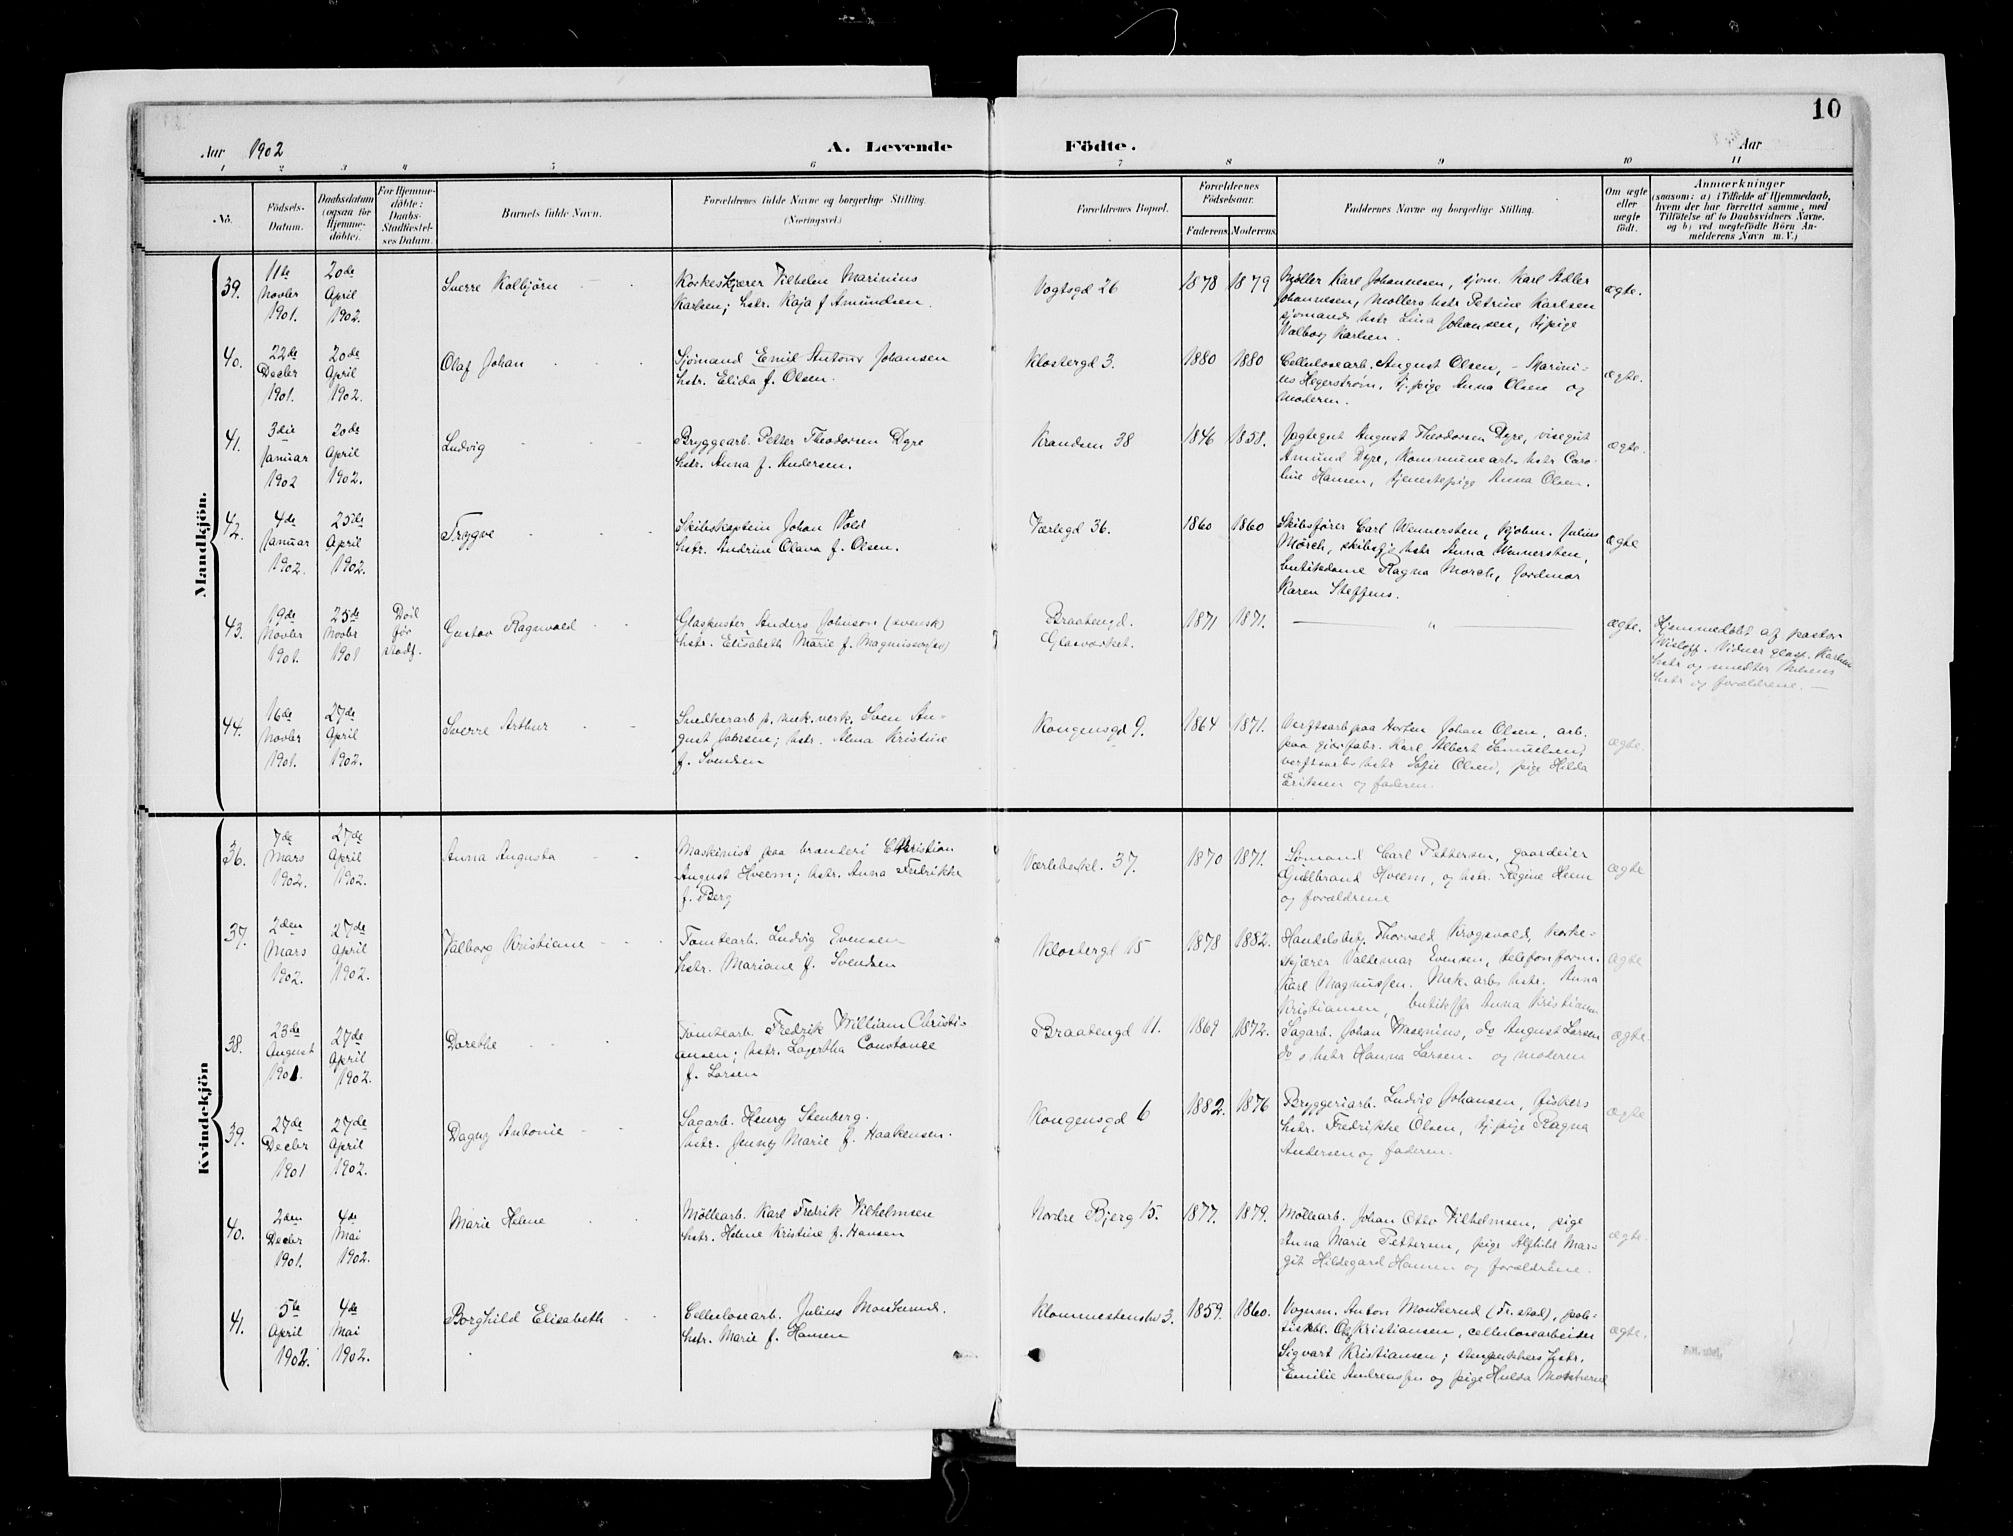 10
Aar 1902 A. Levende Födte. Aar
1 2 3 4 5 6 7 8 9 10 11
No. Födsels-Datum. Daabsdatum (ogsaa for Hjemmedöbte). For Hjemmedöbte: Daabs-Stadfæstelses Datum. Barnets fulde Navn. Forældrenes fulde Navne og borgerlige Stilling. (Næringsvei.) Forældrenes Bopæl. Forældrenes Födselsaar. Faderens. Moderens. Faddernes Navne og borgerlige Stilling. Om ægte eller uægte födt. Anmærkninger (saasom: a) i Tilfælde af Hjemmedaab, hvem der har forrettet samme, med Tilföielse af to Daabsvidners Navne, og b) ved uægtefödte Börn Anmelderens Navn m. V.)
Mandkjön.
39. 11te Novbr 1901. 20de April 1902. Sverre Kolbjörn
Korkeskjærer Vilhelm Marinius
Karlsen; hstr. Kaja f. Amundsen.
Vogtsgd 26 1878 1879
Møller Karl Johannesen, sjøm. Karl Adler
Johannesen, møllers hstr Petrine Karlsen
sjømands hstr Lina Johansen, tj.pige
Valborg Karlsen. ægte.
40. 22de Decbr 1901. 20de April 1902. Olaf Johan
Sjømand Emil Antonr Johansen
hstr. Elida f. Olsen.
Klostergd 3. 1880 1880
Cellulosearb. August Olsen, - Marini-
us Hegerstrøm, tj.pige Anna Olsen og
moderen. ægte.
41. 3die Januar 1902 20de April 1902. Ludvig
Bryggearb. Petter Theodorsen Dyre
hstr. Anna f. Andersen.
Krandsen 38 1846 1858.
August Theodorsen Dyre, visegut
Amund Dyre, Kommunearbs hstr Caro-
line Hansen, tjenestepige Anna Olsen. ægte.
42. 4de Januar 1902. 25de April 1902. Trygve
Skibskaptein Johan Vold
hstr. Andrine Olava f. Olsen.
Værlegd 36. 1860 1860
Skibsfører Carl Wennersten, kjøbm. Julius
Mörch, skibsf. hstr Anna Wennersten,
butikdame Ragna Mörch, jordmor
Karen Steffens. ægte
43. 19de Novbr 1901. 25de Novbr 1901 Gustav Ragnvald
Glaspuster Anders Johnson (svensk)
hstr. Elisabeth Marie f. Magnusson (sv)
Braatengd.
Glasværket. 1871 1871. ———— " ———— ægte.
Hjemmedøbt af pastor
Wisløff. Vidner glasp. Karlsen
hstr og smedter Nilsens
hstr og forældrene. —
44. 16de Novbr 1901. 27de April 1902. Sverre Arthur
Snedkerarb p. mek. verk. Sven Au-
gust Jansen; hstr. Alma Kristine
f. Svendsen
Kongensgd 9. 1864 1871.
Verftsarb paa Horten Johan Olsen, arb.
paa gjærfabr. Karl Albert Samuelsen,
verftsarbs hstr Sofie Olsen, pige Hilda
Eriksen og faderen. ægte.
Kvindekjön
36. 7de Mars 1902. 27de April 1902. Anna Augusta
Maskinist paa brænderi Christian
August Hveem; hstr. Anna Fredrikke
f. Berg
37. 1870 1871.
Sømand Carl Pettersen, gaardeier
Gulbrand Hveem, og hstr. Regine
og forældrene ægte
37. 2den Mars 1902. 27de April 1902. Valborg Kristiane
Tomtearb. Ludvig Evensen
hstr. Mariane f. Svendsen
Klostergd 15 1878 1882.
Handelsbetj. Thorvald Krogsvold, korke-
skjærer Valdemar Evensen, telefonform.
Karl Magnussen. Mek. arbs hstr. Anna
Kristiansen, Anna Kristiansen ægte
38. 23de August 1901. 27de April 1902. Dorethe
Tomtearb. Fredrik William Christi-
ansen; hstr. Lagertha Constance
f. Larsen
Braatengd 11. 1869 1872.
Sagarb. Johan Wasenius, do August Larsen
do s hstr Hanna Larsen. og moderen ægte.
39. 27de Decbr 1901 27de April 1902. Dagny Antonie
Sagarb. Henry Stenberg.
hstr. Jenny Marie f. Haakensen.
Kongensgd 6 1882. 1876
Bryggeriarb. Ludvig Johansen, fiskers
hstr. Fredrikke Olsen, tj.pige Ragna
Andersen og faderen. ægte
40. 2den Decbr 1901. 4de Mai 1902. Marie Helene
Möllearb. Karl Fredrik Vilhelmsen
hstr. Helene Kristine f. Hansen
Nordre Bjerg 15. 1877. 1879.
Möllearb. Johan Otto Vilhelmsen, pige
Anna Marie Pettersen, pige Alfhild Mar-
git Hildegard Hansen og forældrene. ægte.
41. 5te April 1902. 4de Mai 1902. Borghild Elisabeth
Cellulosearb. Julius Monserud.
hstr. Marie f. Hansen
3. 1859. 1860.
Vognm. Anton Monserud (Fr.stad), poli-
Kristiansen, cellulosearbeider
Sigvart Kristiansen; hstr.
Emilie Andreassen og pige Hulda Monserud ægte.